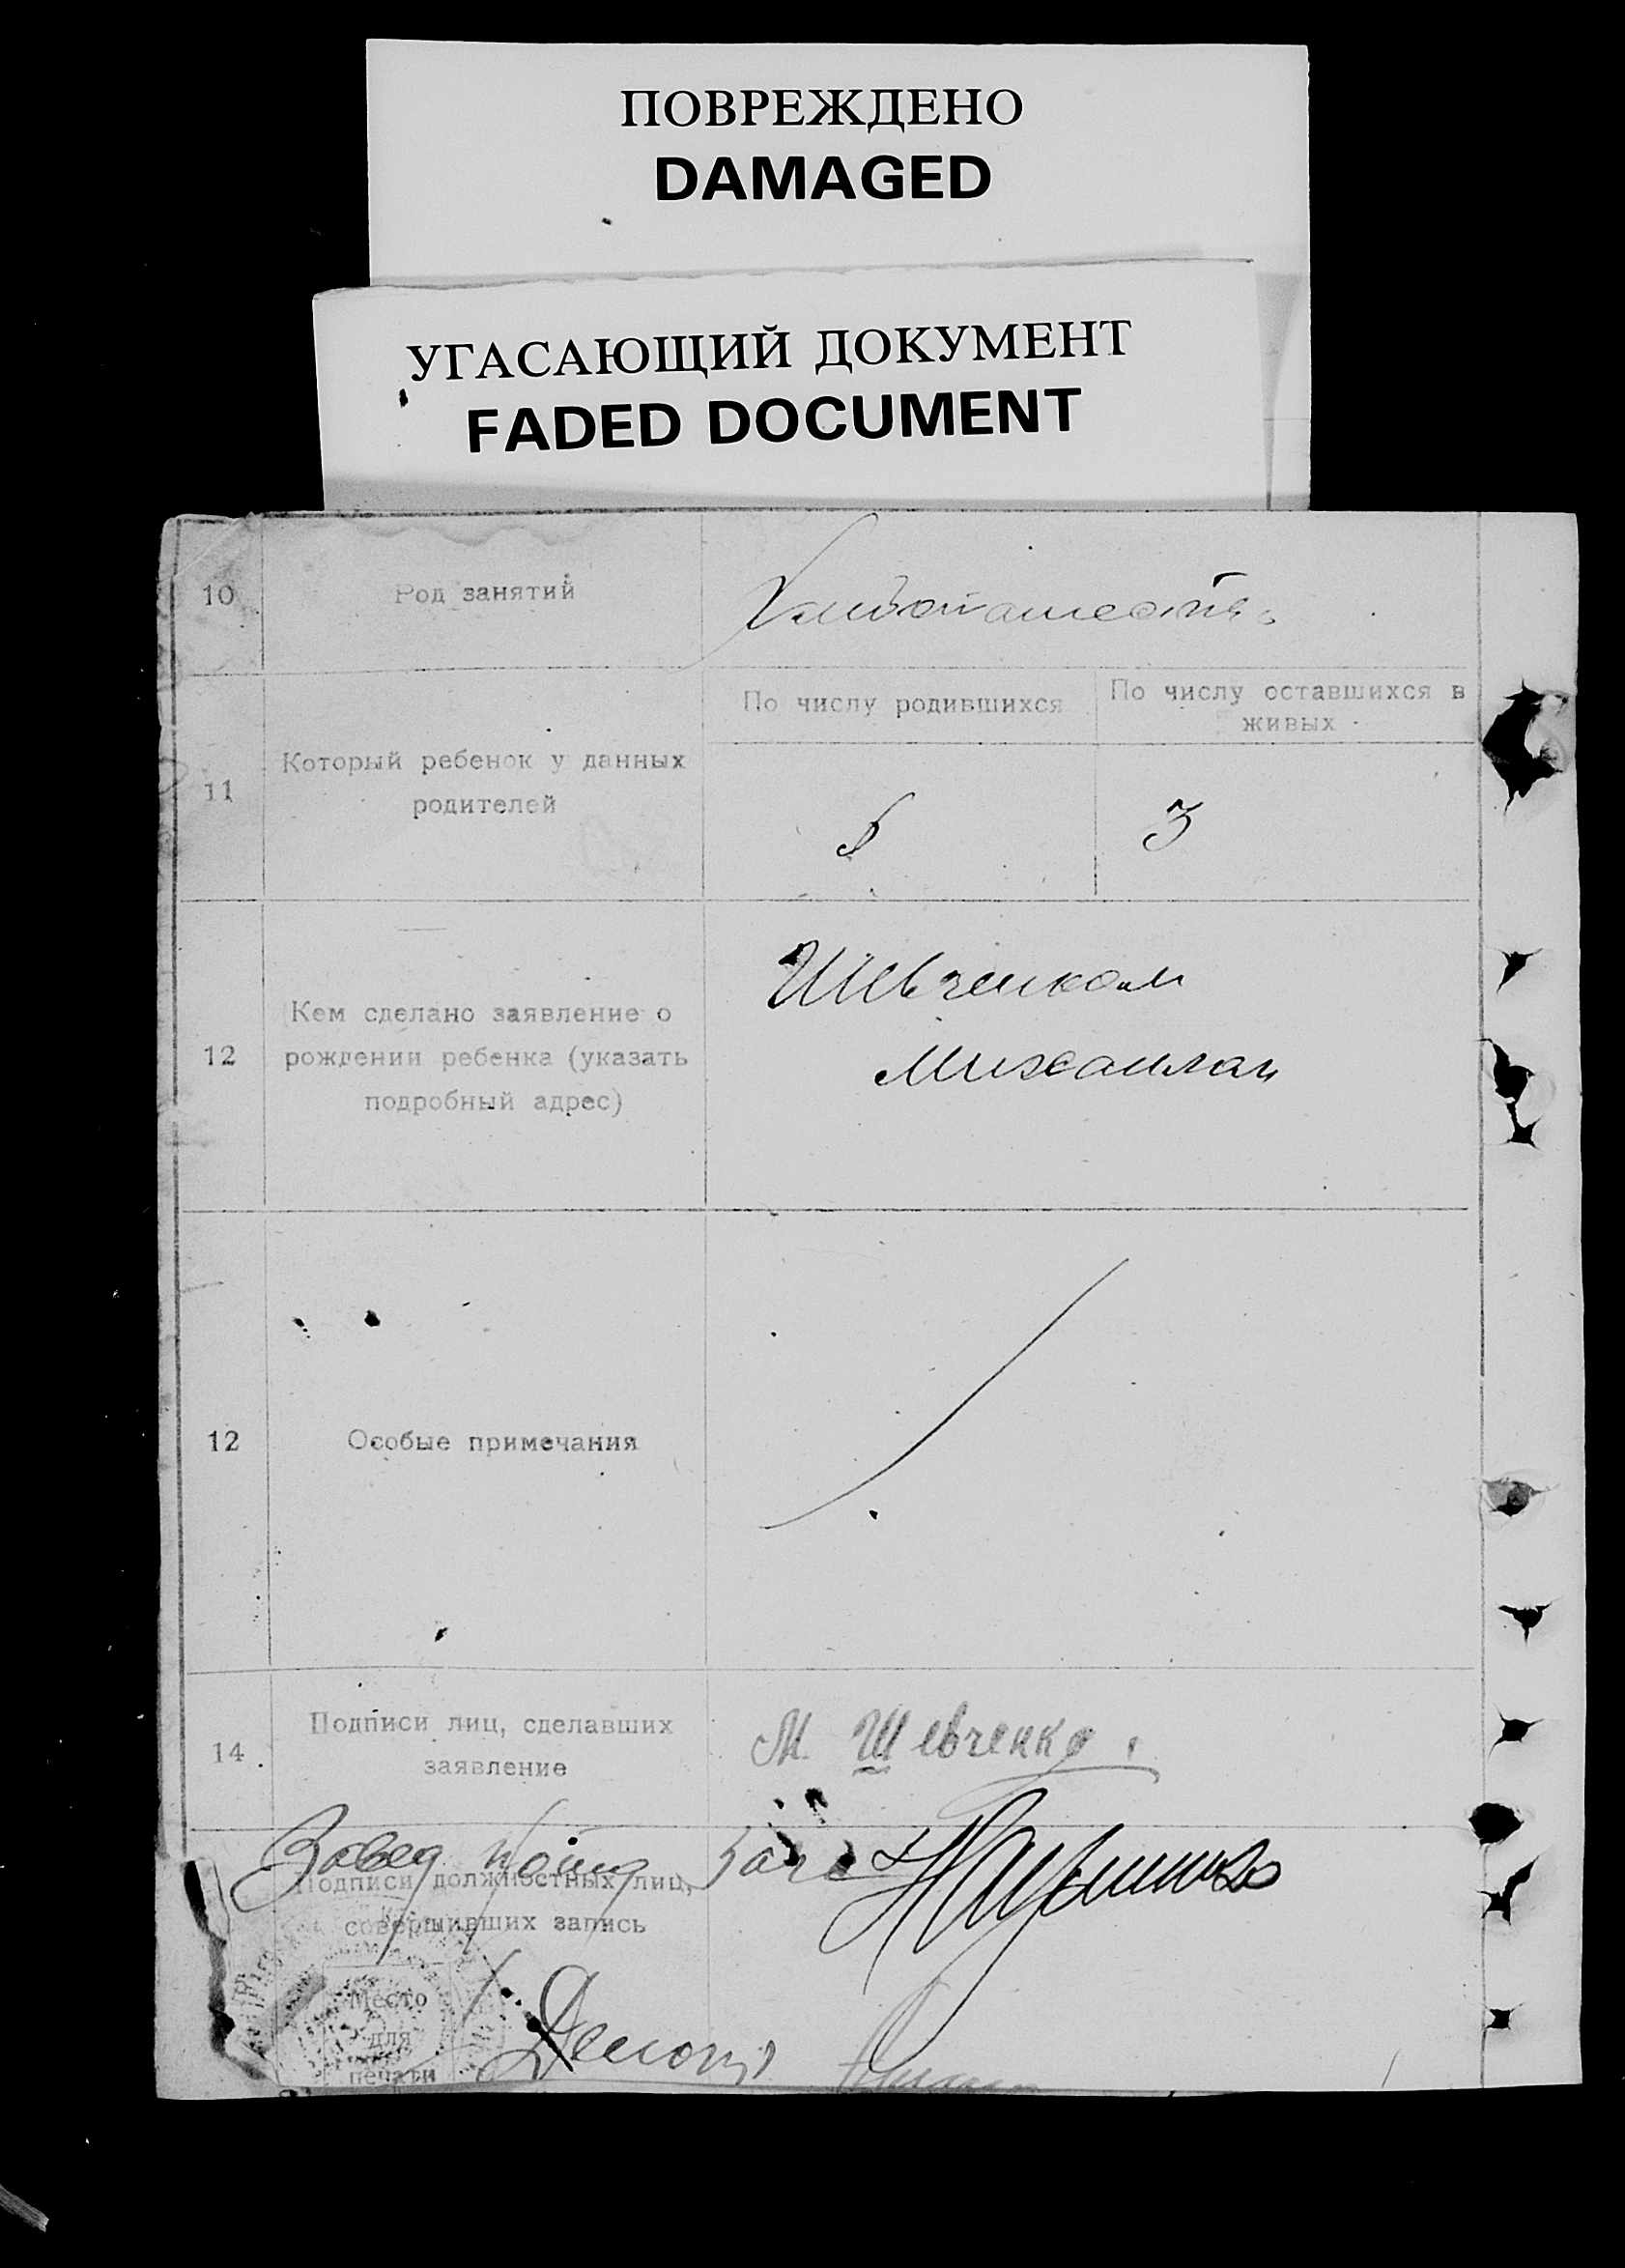 ПОВРЕЖДЕНО
DAMAGED
УГАСАЮЩИЙ ДОКУМЕНТ
FADED DOCUMENT
10 Род занятий
По числу родившихся
По числу оставшихся в
живых
11
Который ребенок у данных
родителей
3
12
Кем сделано заявление о
рождении ребенка (указать
подробный адрес)
Шевченком
Михаилом
12 Особые примечания
14.
Подписи лиц, сделавших
заявление
М. Шевченко.
Завед.
Подписи должностных лиц,
совершивших запись
Место
для
печати